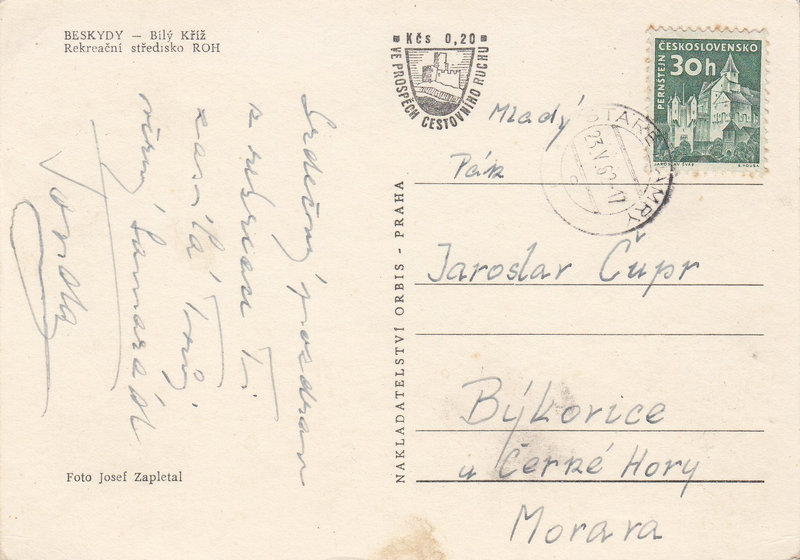 BESKYDY — Bílý Kříž
Rekreační středisko ROH
Srdečný pozdrav
z rekreace Ti
zasílá Tvůj
věrný kamarád
Foto Josef Zapletal
NAKLADATELSTVÍ ORBIS - PRAHA
Kčs 0,20
VE PROSPĚCH CESTOVNÍHO RUCHU
ČESKOSLOVENSKO
PERNŠTEJN
30h
JAROSLAV ŠVÁB
STARÉ HAMRY
23.V.6
-17
Mladý
Pán
Jaroslav Čupr
Býkovice
u Černé Hory
Morava